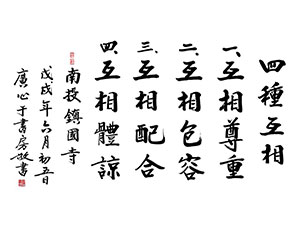 四種互相
一、互相尊重
二、互相包容
三、互相配合
四、互相體諒
南投鎮國寺
戊戌年六月初五日
廣心于書房敬書